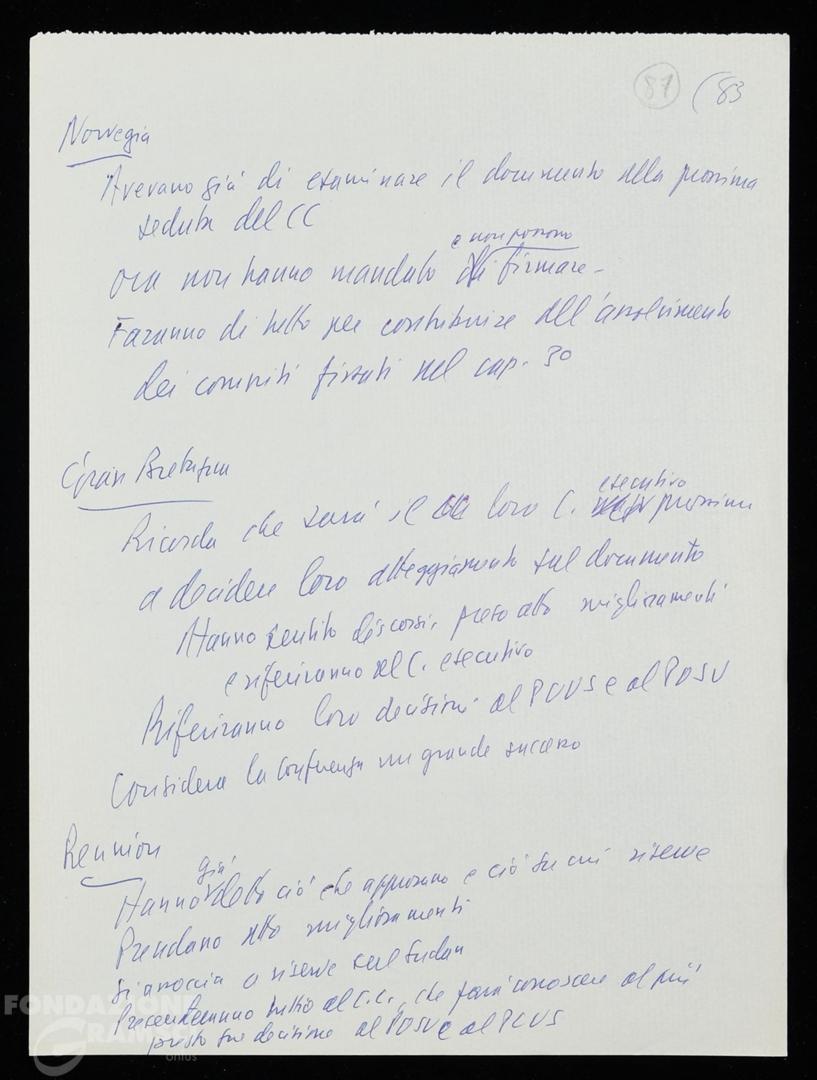 87 (83
Norvegia
Avevano già di esaminare il documento nella prossima
seduta del CC
e non possono
ora non hanno mandato di firmare -
Faranno di tutto per contribuire all'assolvimento
dei compiti fissati nel cap. 30
Gran Bretagna
esecutivo
Ricorda che sarà il loro C. prossimo
a decidere loro atteggiamento sul documento
Hanno sentito discorsi, preso atto miglioramenti
e riferiranno al C. esecutivo
Riferiranno loro decisioni al PCUS e al POSU
Considera la conferenza un grande successo
Reunion
già
Hanno detto ciò che approvano e ciò su cui riserve
Prendono atto miglioramenti
Si associa a riserve sul Sudan
Presenteranno tutto al C.C., che farà conoscere al più
presto sue decisioni al POSU e al PCUS
FONDAZIONE
GRAMSCI
onlus